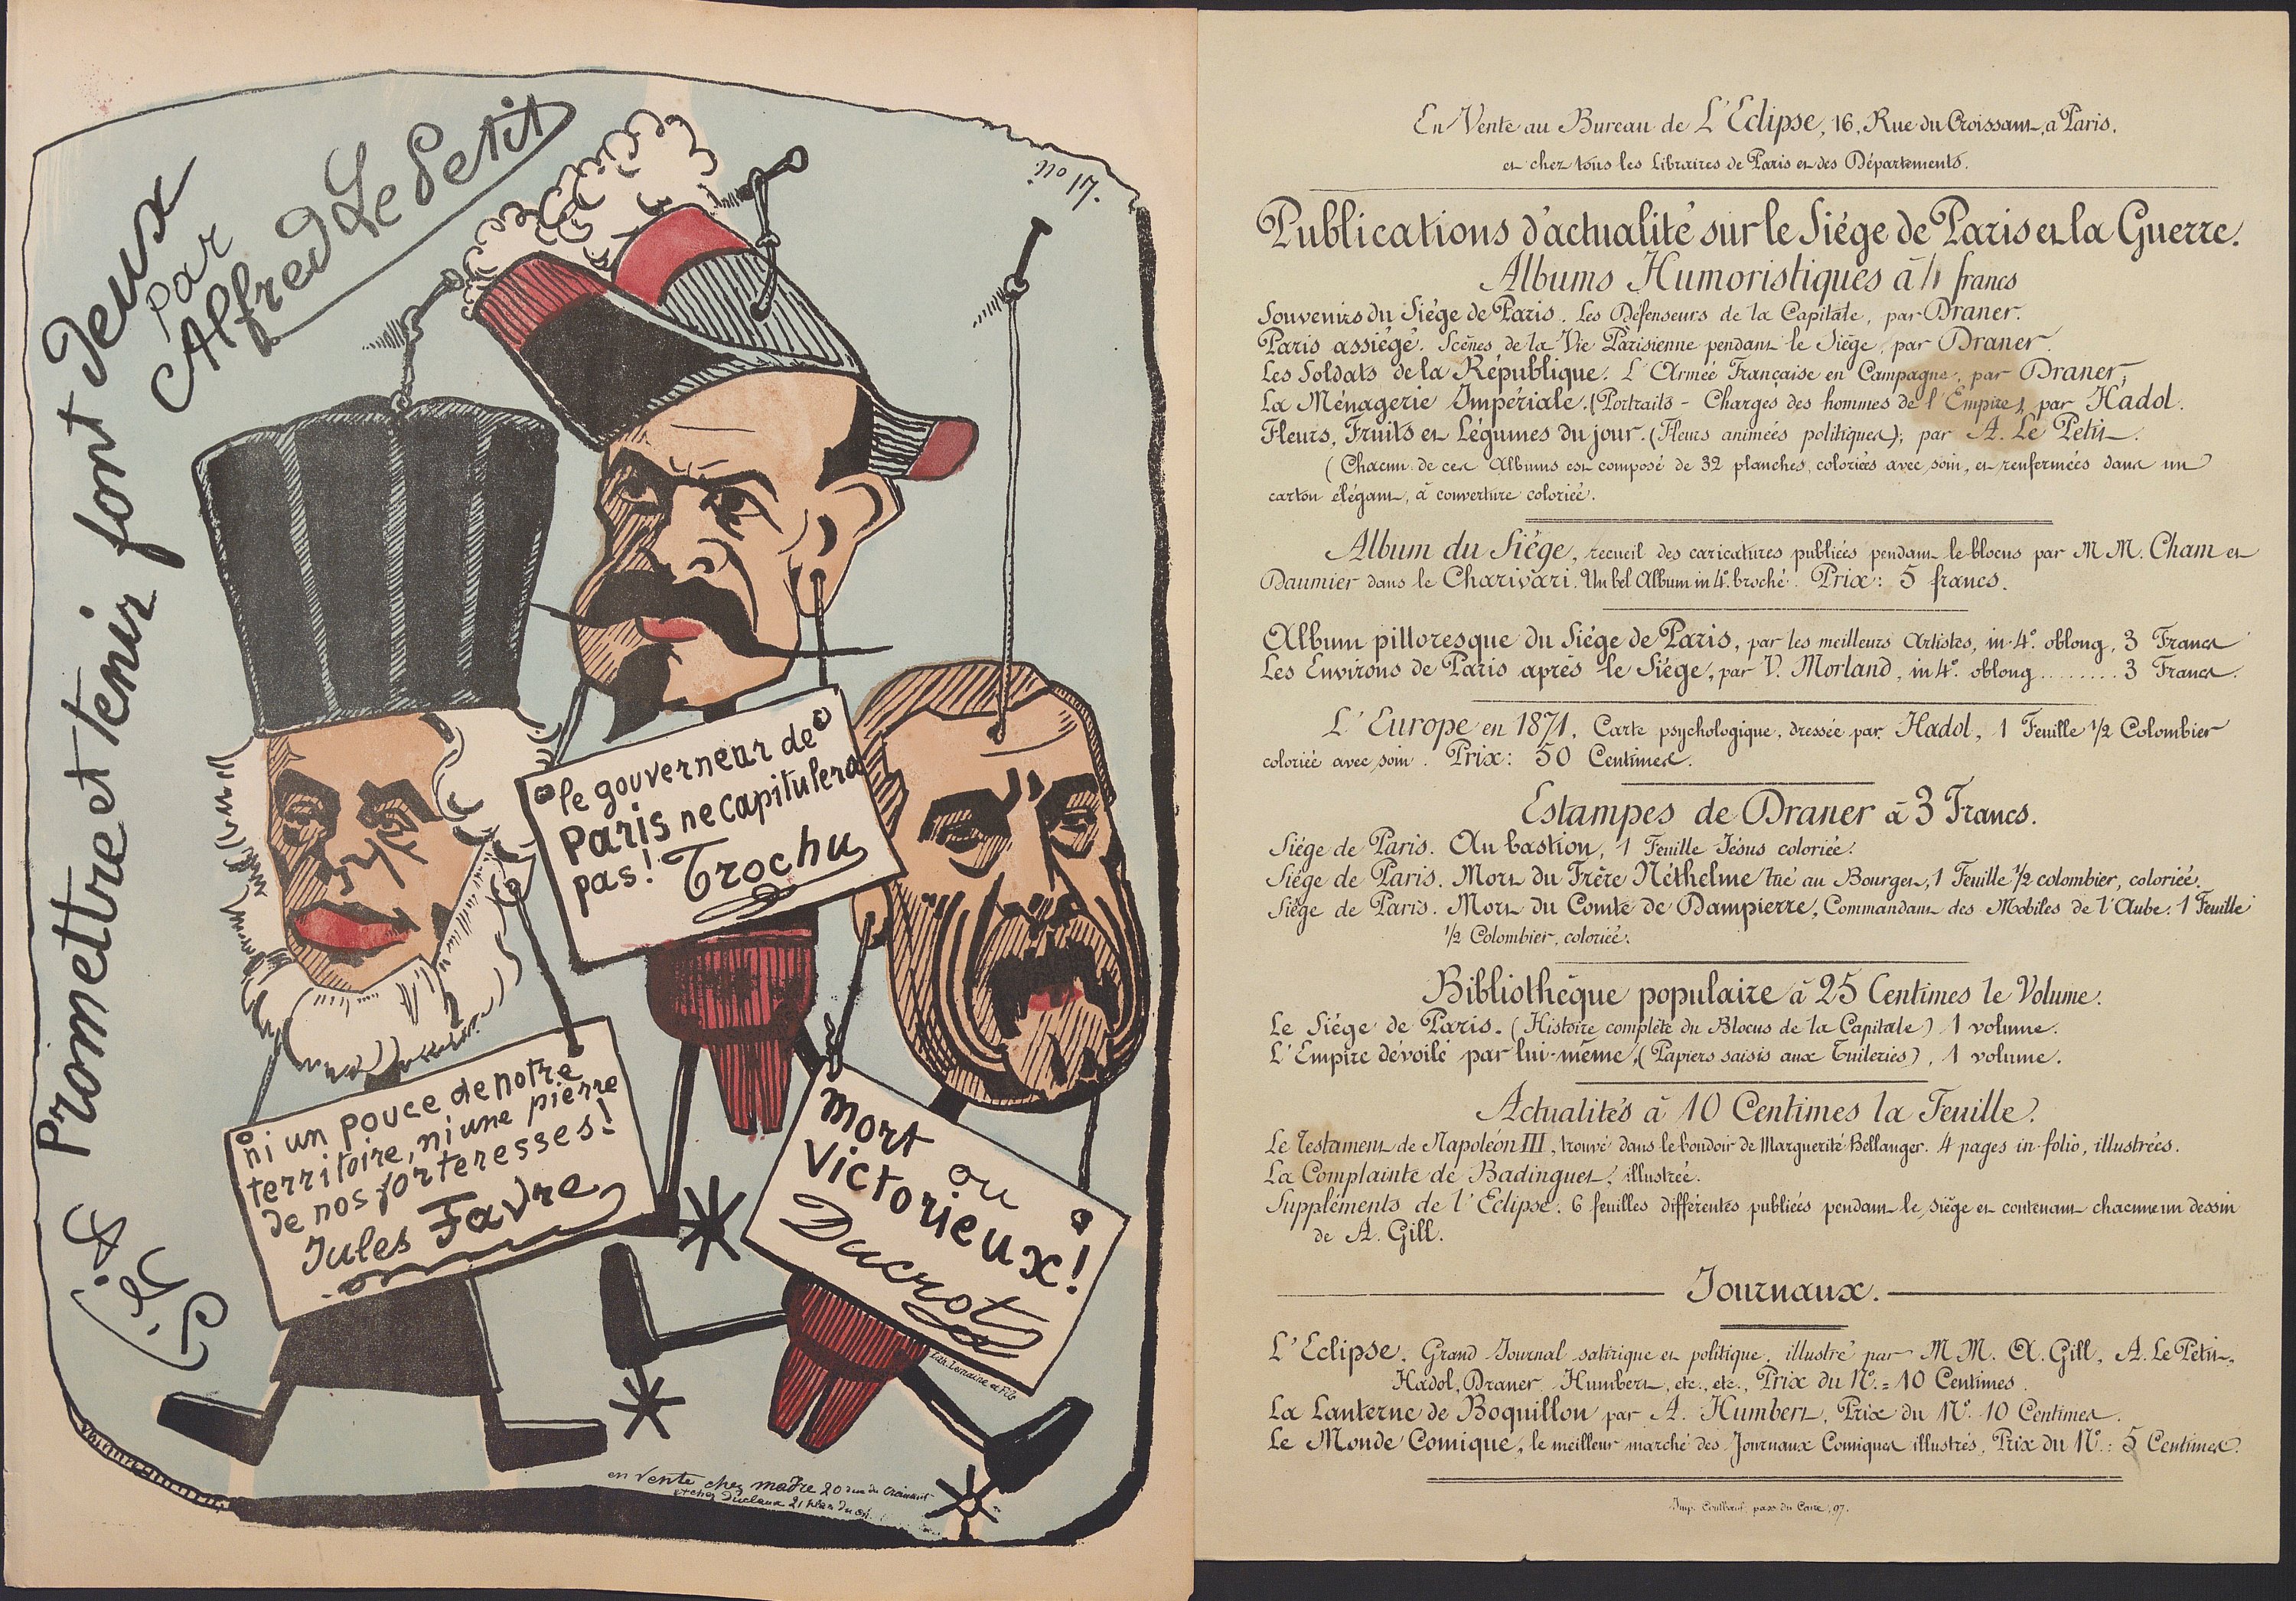 Promettre et tenir font deux
par
Alfred Le Petit
le gouverneur de
Paris ne capitulera
pas! Trochu
ni un pouce de notre
territoire, ni une pierre
de nos forteresses!
Jules Favre
mort ou
Victorieux!
Ducrot
Lith. Lemaine et Fils
en vente chez madre 20 rue du Croissant
et chez Duclaux 21 place du
En Vente au Bureau de L'Eclipse, 16, Rue du Croissant, à Paris.
et chez tous les Libraires de Paris et des Départements.
Publications d'actualité sur le Siége de Paris et la Guerre.
Albums Humoristiques à 4 francs
Souvenirs du Siége de Paris. Les Défenseurs de la Capitale, par Draner.
Paris assiégé. Scènes de la Vie Parisienne pendant le Siége, par Draner.
Les Soldats de la République. L'Armée Française en Campagne, par Draner,
La Ménagerie Impériale. (Portraits - Charges des hommes de l'Empire), par Hadol.
Fleurs, Fruits et Légumes du jour. (Fleurs animées politiques); par A. Le Petit.
(Chacun de ces Albums est composé de 32 planches, coloriées avec soin, et renfermées dans un
carton élégant, à couverture coloriée.
Album du Siége, recueil des caricatures publiées pendant le blocus par MM. Cham et
Daumier dans le Charivari. Un bel Album in 4º. broché. Prix: 5 francs.
Album pittoresque du Siége de Paris, par les meilleurs Artistes, in-4º. oblong, 3 Francs
Les Environs de Paris après le Siége, par V. Morland, in 4º. oblong........3 Francs.
L'Europe en 1871. Carte psychologique, dressée par Hadol, 1 Feuille ½ Colombier
coloriée avec soin. Prix: 50 Centimes.
Estampes de Draner à 3 Francs.
Siége de Paris. Au bastion, 1 Feuille Jésus coloriée.
Siége de Paris. Mort du Frère Néthelme tué au Bourget, 1 Feuille ½ colombier, coloriée.
Siége de Paris. Mort du Comte de Dampierre, Commandant des Mobiles de l'Aube. 1 Feuille
½ Colombier, coloriée.
Bibliothèque populaire à 25 Centimes le Volume.
Le Siége de Paris. (Histoire complète du Blocus de la Capitale) 1 volume.
L'Empire dévoilé par lui-même, (Papiers saisis aux Tuileries), 1 volume.
Actualités à 10 Centimes la Feuille.
Le Testament de Napoléon III, trouvé dans le boudoir de Marguerite Bellanger. 4 pages in-folio, illustrées.
La Complainte de Badinguet, illustrée.
Suppléments de l'Eclipse. 6 feuilles différentes publiées pendant le siége et contenant chacune un dessin
de A. Gill.
Journaux.
L'Eclipse. Grand Journal satirique et politique, illustré par MM. A. Gill, A. Le Petit,
Hadol, Draner, Humbert, etc., etc., Prix du Nº. = 10 Centimes.
La Lanterne de Boquillon par A. Humbert, Prix du Nº. 10 Centimes.
Le Monde Comique, le meilleur marché des Journaux Comiques illustrés, Prix du Nº.: 5 Centimes.